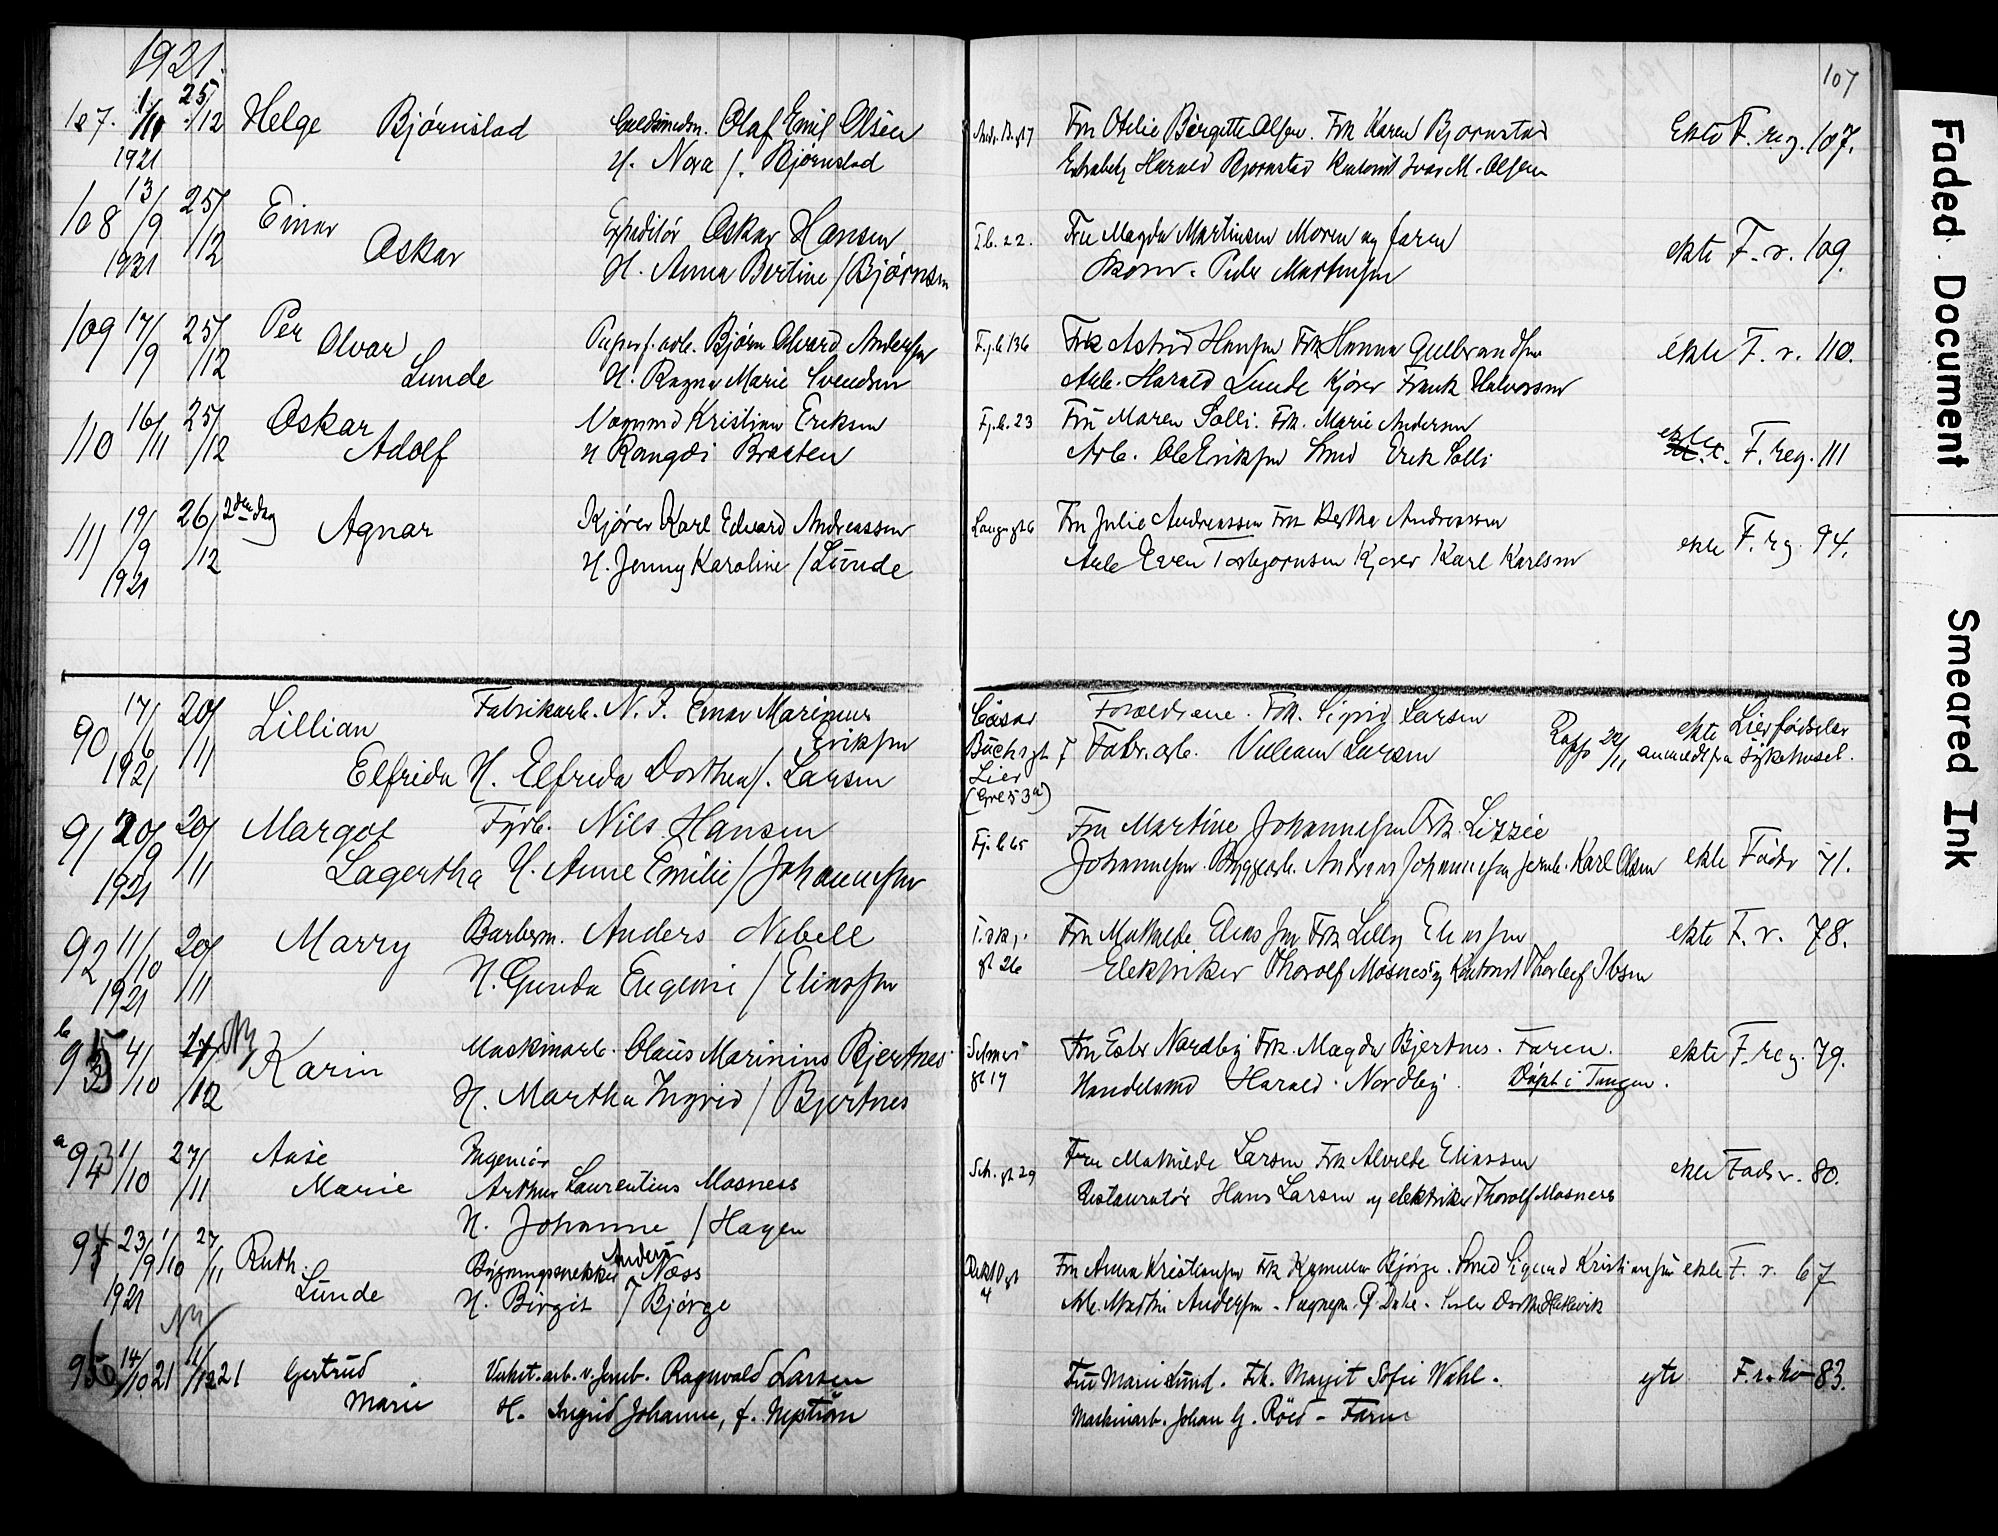 1921.
107
107. 1/11 1921 25/12 Helge Bjørnstad Guldsmedsv. Olaf Emil Olsen Fru Otelie Birgitte Olsen. Frk Karen Bjørnstad Ekte F. reg. 107.
H. Nora f. Bjørnstad Harald Bjørnstad Kontorist Ivar M. Olsen
108 13/9 1921 25/12 Einar Oskar Expeditør Oskar Hansen T.b. 22. Fru Magda Martinsen Moren og faren ekte F. r. 109.
H. Anna Bertine / Bjørnsen Skom. Peder Martinsen
109 17/9 25/12 Per Alvar Lunde Papirf. arb. Bjørn Alvard Andersen F.j.b 136 Frk Astrid Hansen Frk Hanna Gulbrandsen ekte F. r. 110.
H. Ragna Marie Svendsen Arb. Harald Lunde Kjører Frank Halvorsen
110 16/11 25/12 Oskar Adolf Vognmd Kristian Eriksen Fj.b. 23 Fru Maren Solli. Frk. Marie Andersen ekte F. reg. 111
H Rangdi Braaten Arb. Ole Eriksen Smed Erik Solli
111 19/9 1921 26/12 2den dag Agnar Kjører Karl Edvard Andreassen Fru Julie Andreassen Frk Hertha Andreassen ekte F. reg. 94.
H. Jenny Karoline / Lunde Arb Even Torbjørnsen Kjører Karl Karlsen
90 17/6 1921 20/11 Lillian Elfrida Fabrikarb. N. J. Einar Marinius Eriksen Cæsar Buchs gt 7 Lier Foreldrene. Frk. Sigrid Larsen Rapp 22/11 ekte Lierfødsler
H. Elfrida Dorthea f. Larsen Fabr. arb. William Larsen anmeldt fra sykehuset.
91 20/9 1921 20/11 Margot Lagertha Fyrb. Nils Hansen Fj. b 65 Fru Martine Johannesen Frk. Lizzie
H. Anne Emilie / Johannesen Johannesen. Bryggearb. Andreas Johannesen jernb. Karl Olsen ekte Fødr 71.
92 11/10 1921 20/11 Marry Barberm. Anders Nebell gt 26 Fru Mathilde Eliassen Frk Lilly Eliassen ekte F. r. 78.
H. Gunda Eugenie / Eliassen Elektriker Thorolf Mosness og Kontorist Thorleif Ibsen
b 95 4/10 17/12 Ny Karin Maskinarb. Olaus Marinius Bjertnes Selmers gt 19 Fru Ester Nordby Frk. Magda Bjertnes. Faren. ekte F. reg. 79.
H. Martha Ingrid / Bjertnes Handelsmd Harald Nordby. Døpt i Tangen.
a 93 1/10 27/11 Aase Marie Ingeniør Arthur Laurentius Mosness Sch. gt 29 Fru Mathilde Larsen Frk Alvilde Eliassen ekte Fødr. 80.
H. Johanne / Hagen Restauratør Hans Larsen og elektriker Thorolf Mosness
94 23/9 1921 27/11 Ruth Lunde Bygningssnekker Anders Næss 4 Fru Anna Kristiansen Frk Bjørge. Smed Sigurd Kristiansen ekte F. r. 67
Ny H. Birgit f Bjørge Arb. Martin Andersen
96 14/10 21 11/12 21 Gertrud Marie Vakst. arb. v. Jernb. Ragnvald Larsen Fru Marie Lund. Frk. Margit Sofie Wahl. gte F. r. No 83.
H. Ingrid Johanne, f. Nystrøm Maskinarb. Johan G. Röed - Faren
Faded Document
Smeared Ink